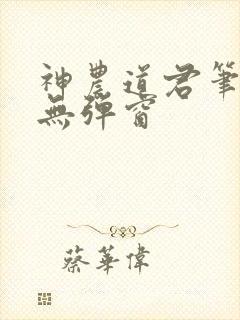 神農道君筆
無彈窗
蔡華偉